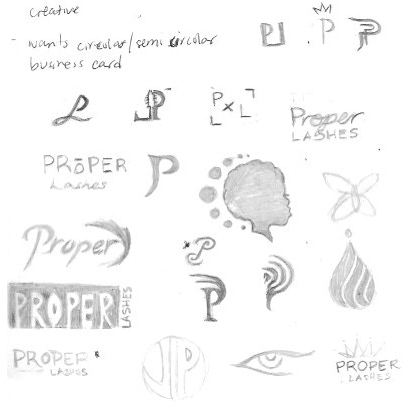 creative
- wants circular/semi circular
business card
P
P
P
L
P
P x L
Proper
LASHES
PRōPER
Lashes
P
Proper
P
P
P
PROPER
LASHES
PROPER
LASHES
JP
PROPER
LASHES